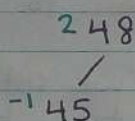 2 48
/
-1 45